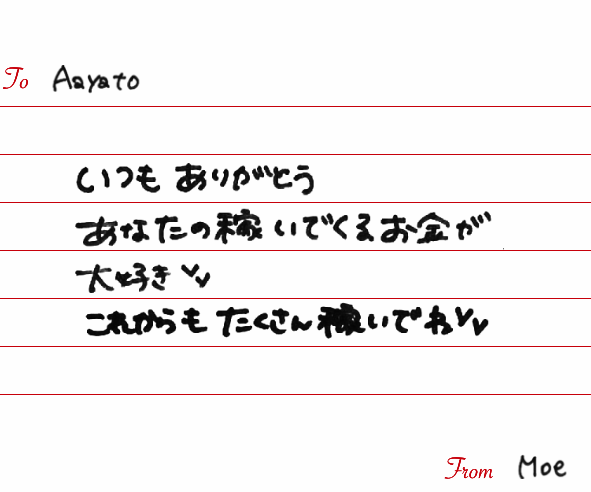 To Aayato
いつもありがとう
あなたの稼いでくるお金が
大好き♡♡
これからもたくさん稼いでね♡♡
From Moe